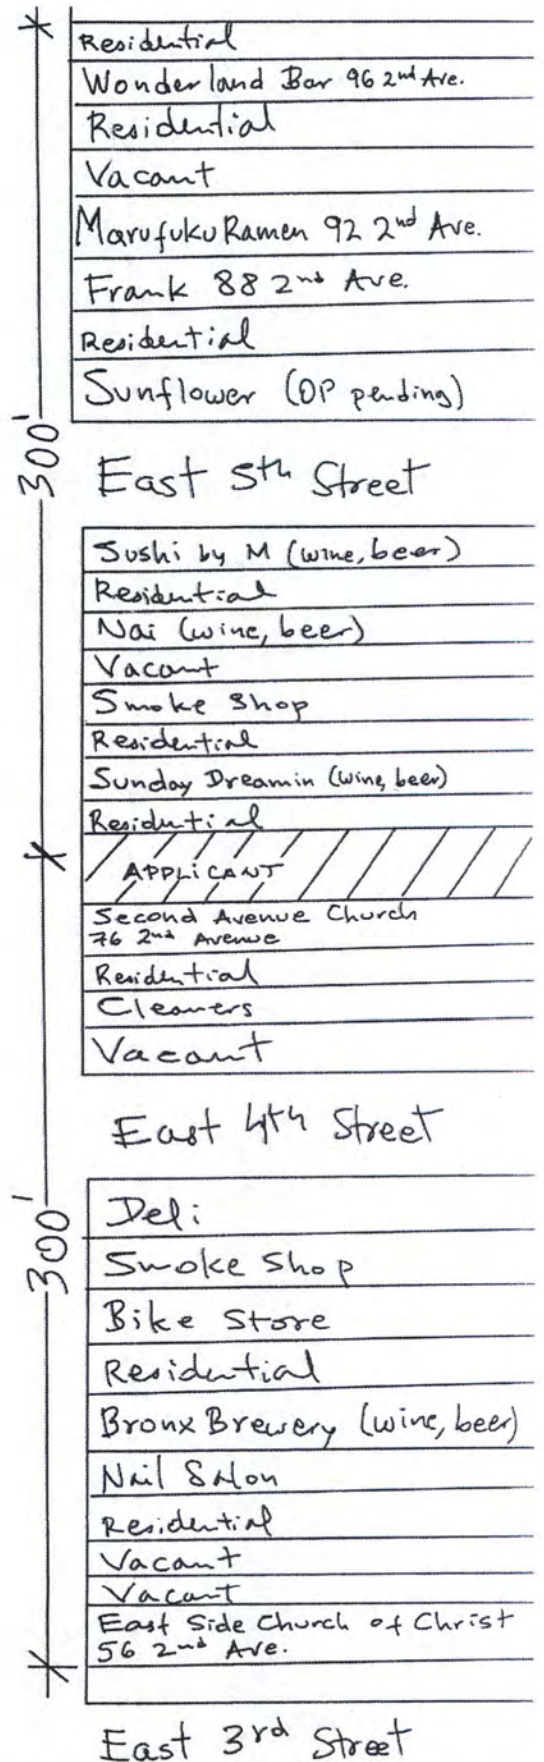 Residential
Wonderland Bar 96 2nd Ave.
Residential
Vacant
Marufuku Ramen 92 2nd Ave.
Frank 88 2nd Ave.
Residential
Sunflower (OP pending)
300'
East 5th Street
Sushi by M (wine, beer)
Residential
Nai (wine, beer)
Vacant
Smoke Shop
Residential
Sunday Dreamin (wine, beer)
Residential
APPLICANT
Second Avenue Church
76 2nd Avenue
Residential
Cleaners
Vacant
East 4th Street
300'
Deli
Smoke Shop
Bike Store
Residential
Bronx Brewery (wine, beer)
Nail Salon
Residential
Vacant
Vacant
East Side Church of Christ
56 2nd Ave.
East 3rd Street